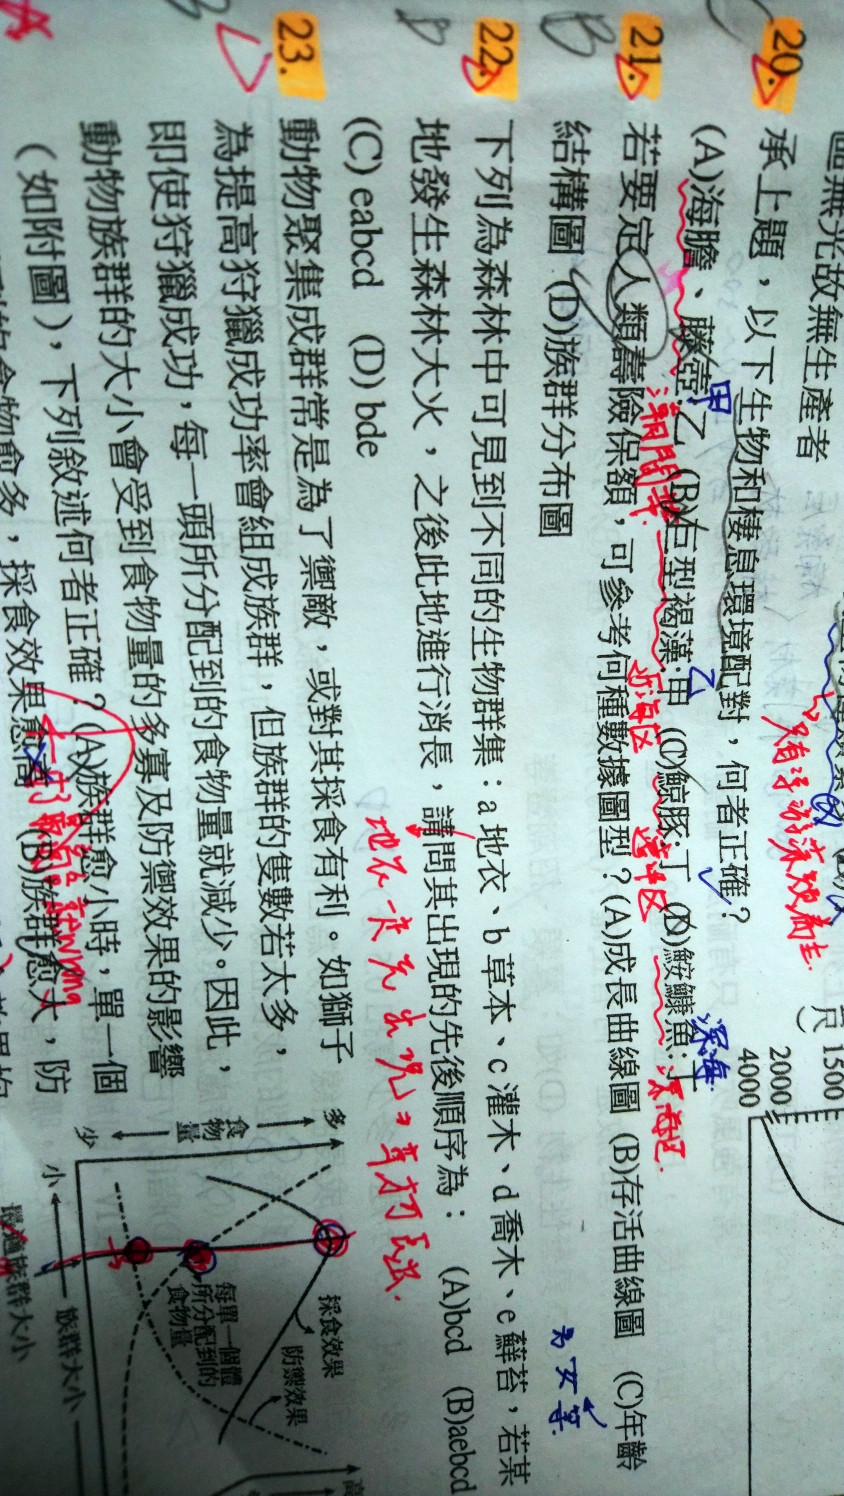 區無光故無生產者
20.
承上題，以下生物和棲息環境配對，何者正確？
(A)海膽、藤壺:乙 (B)巨型褐藻:甲 (C)鯨豚:丁 (D)鮟鱇魚:丁
甲
乙
深海
潮間帶
近海区
遠洋区
1500
2000
4000
B
21.
若要定人類壽險保額，可參考何種數據圖型？(A)成長曲線圖 (B)存活曲線圖 (C)年齡
結構圖 (D)族群分布圖
D
22.
下列為森林中可見到不同的生物群集：a 地衣、b 草本、c 灌木、d 喬木、e 蘚苔，若某
地發生森林大火，之後此地進行消長，請問其出現的先後順序為： (A)bcd (B)aebcd
(C) eabcd (D) bde
23.
動物聚集成群常是為了禦敵，或對其採食有利。如獅子
為提高狩獵成功率會組成族群，但族群的隻數若太多，
即使狩獵成功，每一頭所分配到的食物量就減少。因此，
動物族群的大小會受到食物量的多寡及防禦效果的影響
（如附圖），下列敘述何者正確？(A)族群愈小時，單一個
食物愈多，採食效果愈高 (B)族群愈大，防
多
食物量
少
採食效果
防禦效果
每單一個體
所分配到的
食物量
小
族群大小
最適族群大小
高